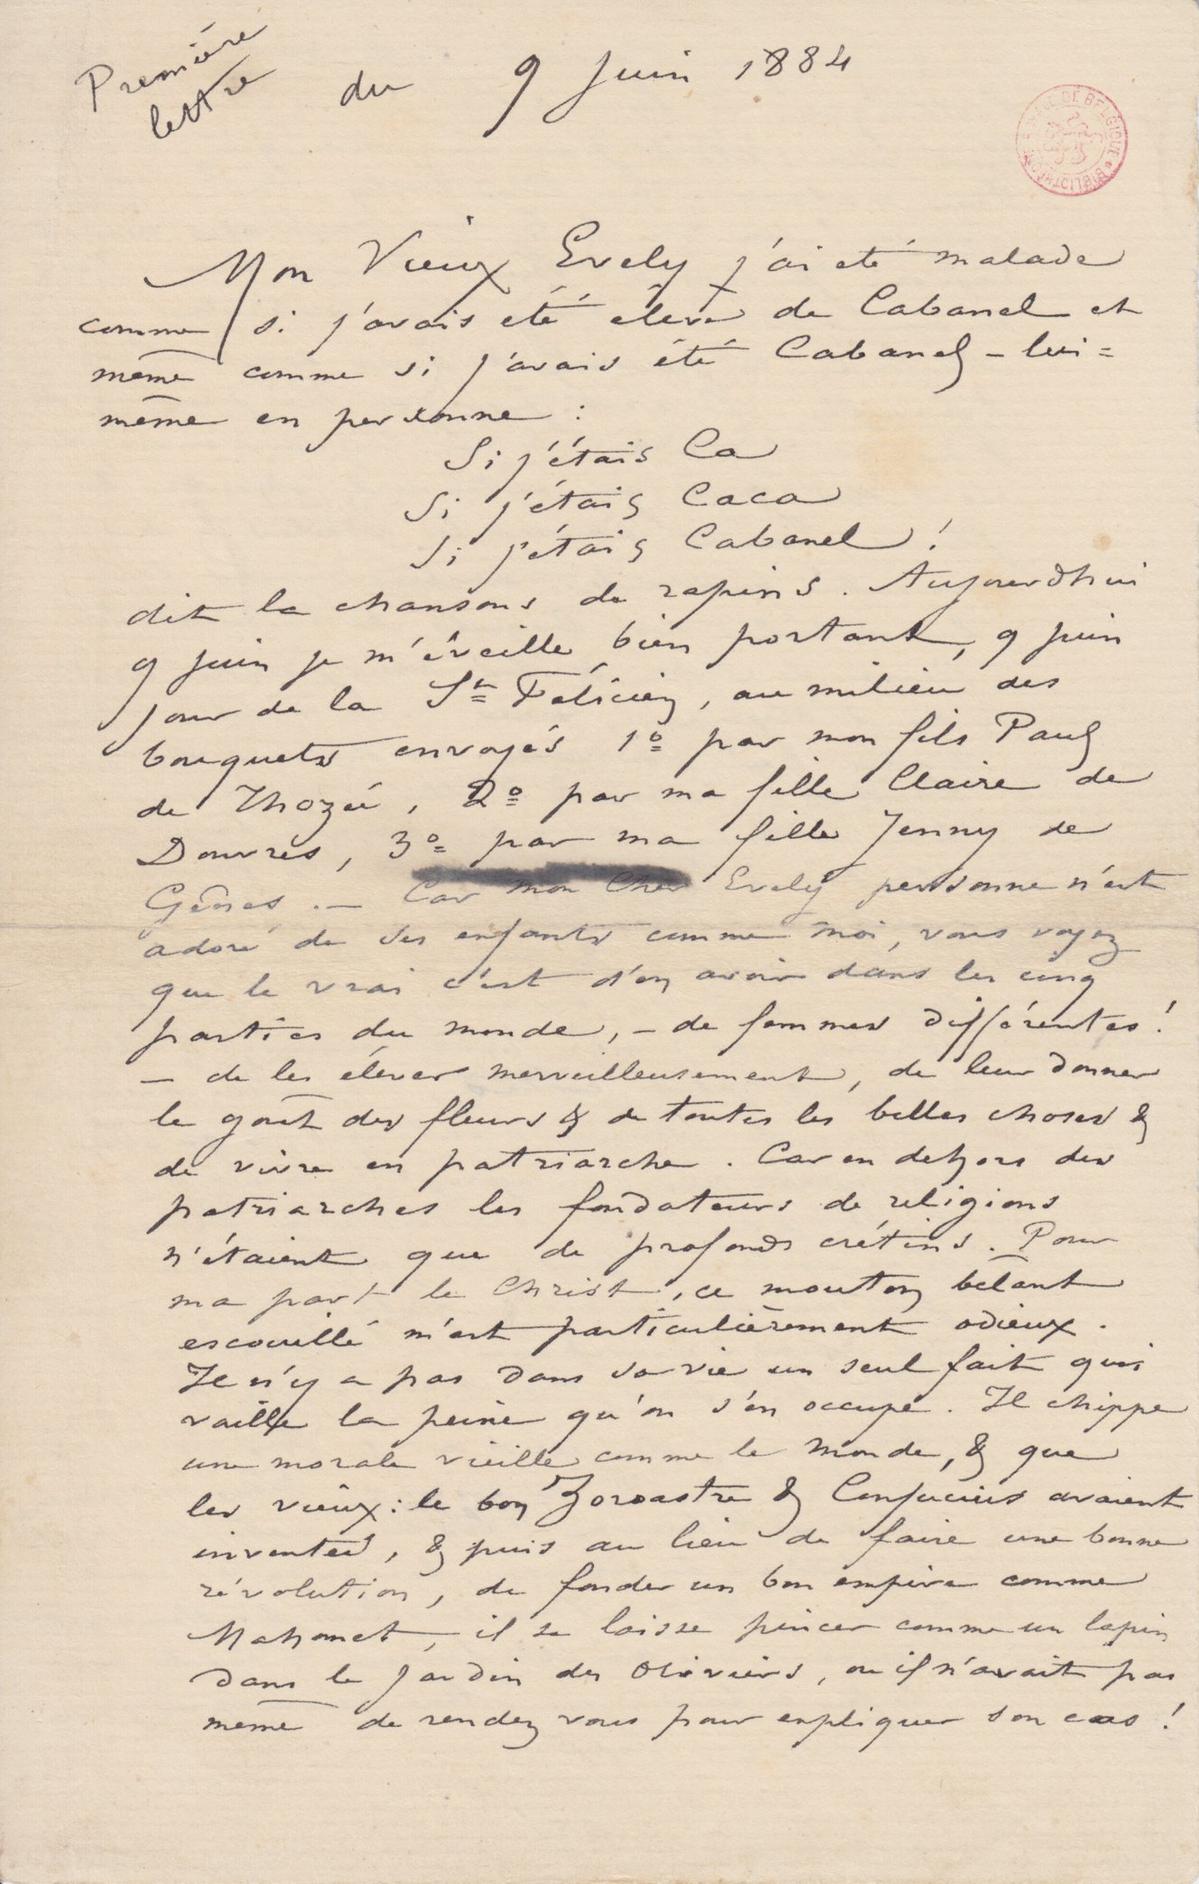 Première
lettre
du 9 Juin 1884
BIBLIOTHÈQUE ROYALE DE BELGIQUE
Mon Vieux Evely j'ai eté malade
comme si j'avais été élève de Cabanel et
même comme si j'avais été Cabanel - lui=
même en personne :
Si j'étais Ca
Si j'étais Caca
Si j'étais Cabanel !
dit la chansons de rapins. Aujourdhui
9 Juin je m'éveille bien portant, 9 Juin
jour de la St Félicien, au milieu des
bouquets envoyés 1º par mon fils Paul
de Thozée, 2º par ma fille Claire de
Douvres, 3º par ma fille Jenny de
Gênes. — Car mon Cher Evely personne n'est
adoré de ses enfants comme moi, vous voyez
que le vrai c'est d'en avoir dans les cinq
parties du monde, - de femmes différentes !
— de les élever merveilleusement, de leur donner
le goût des fleurs & de toutes les belles choses &
de vivre en patriarche. Car en dehors des
patriarches les fondateurs de religions
n'étaient que de profonds crétins. Pour
ma part le Christ, ce mouton bêlant
escouillé m'est particulièrement odieux.
Il n'y a pas dans sa vie un seul fait qui
vaille la peine qu'on s'en occupe. Il chippe
une morale vieille comme le monde, & que
les vieux : le bon Zoroastre & Confucius avaient
inventée, & puis au lieu de faire une bonne
révolution, de fonder un bon empire comme
Mahomet, il se laisse pincer comme un lapin
dans le Jardin des Oliviers, ou il n'avait pas
même de rendez vous pour expliquer son cas !